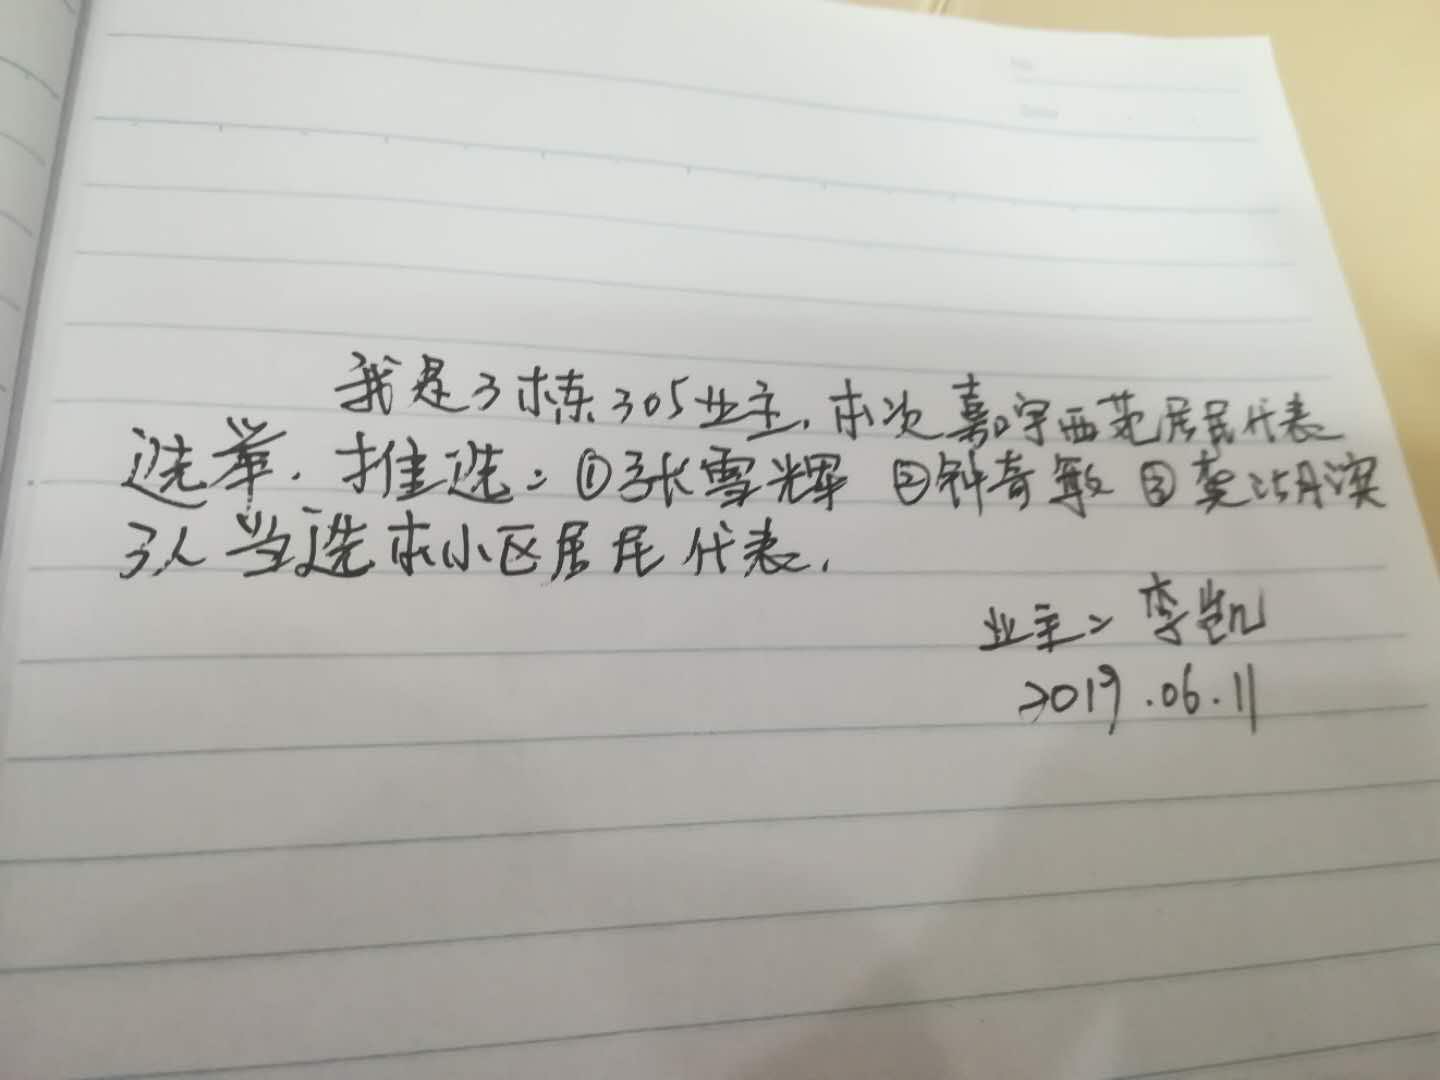 我是3栋305业主,本次嘉宇西苑居民代表
选举.推选:①张雪辉 ②钟奇敏 ③龚
3人当选本小区居民代表.
业主:李凯
2019.06.11